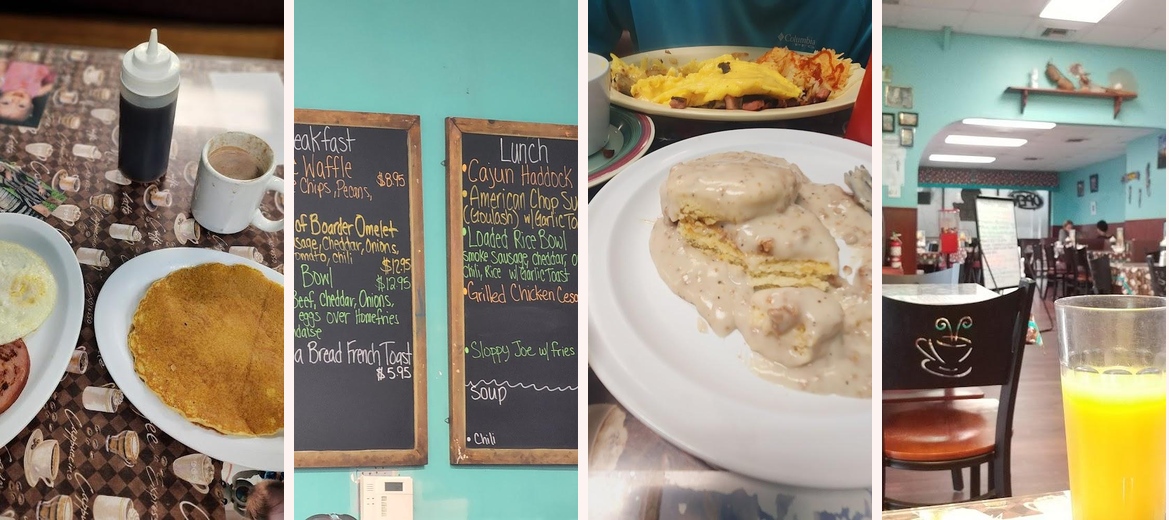 eakfast
Waffle
Chips, Pecans,
$8.95
of Boarder Omelet
sage, Cheddar, Onions,
omato, Chili
$12.95
Bowl
$12.95
Beef, Cheddar, Onions,
eggs over Homefries
daise
a Bread French Toast
$5.95
Lunch
• Cajun Haddock
• American Chop Su
(Goulash) w/garlic To
• Loaded Rice Bowl
Smoke Sausage, cheddar, o
Chili, Rice w/garlic Toast
• Grilled Chicken Ceas
• Sloppy Joe w/ fries
Soup
• Chili
Columbia
OPEN